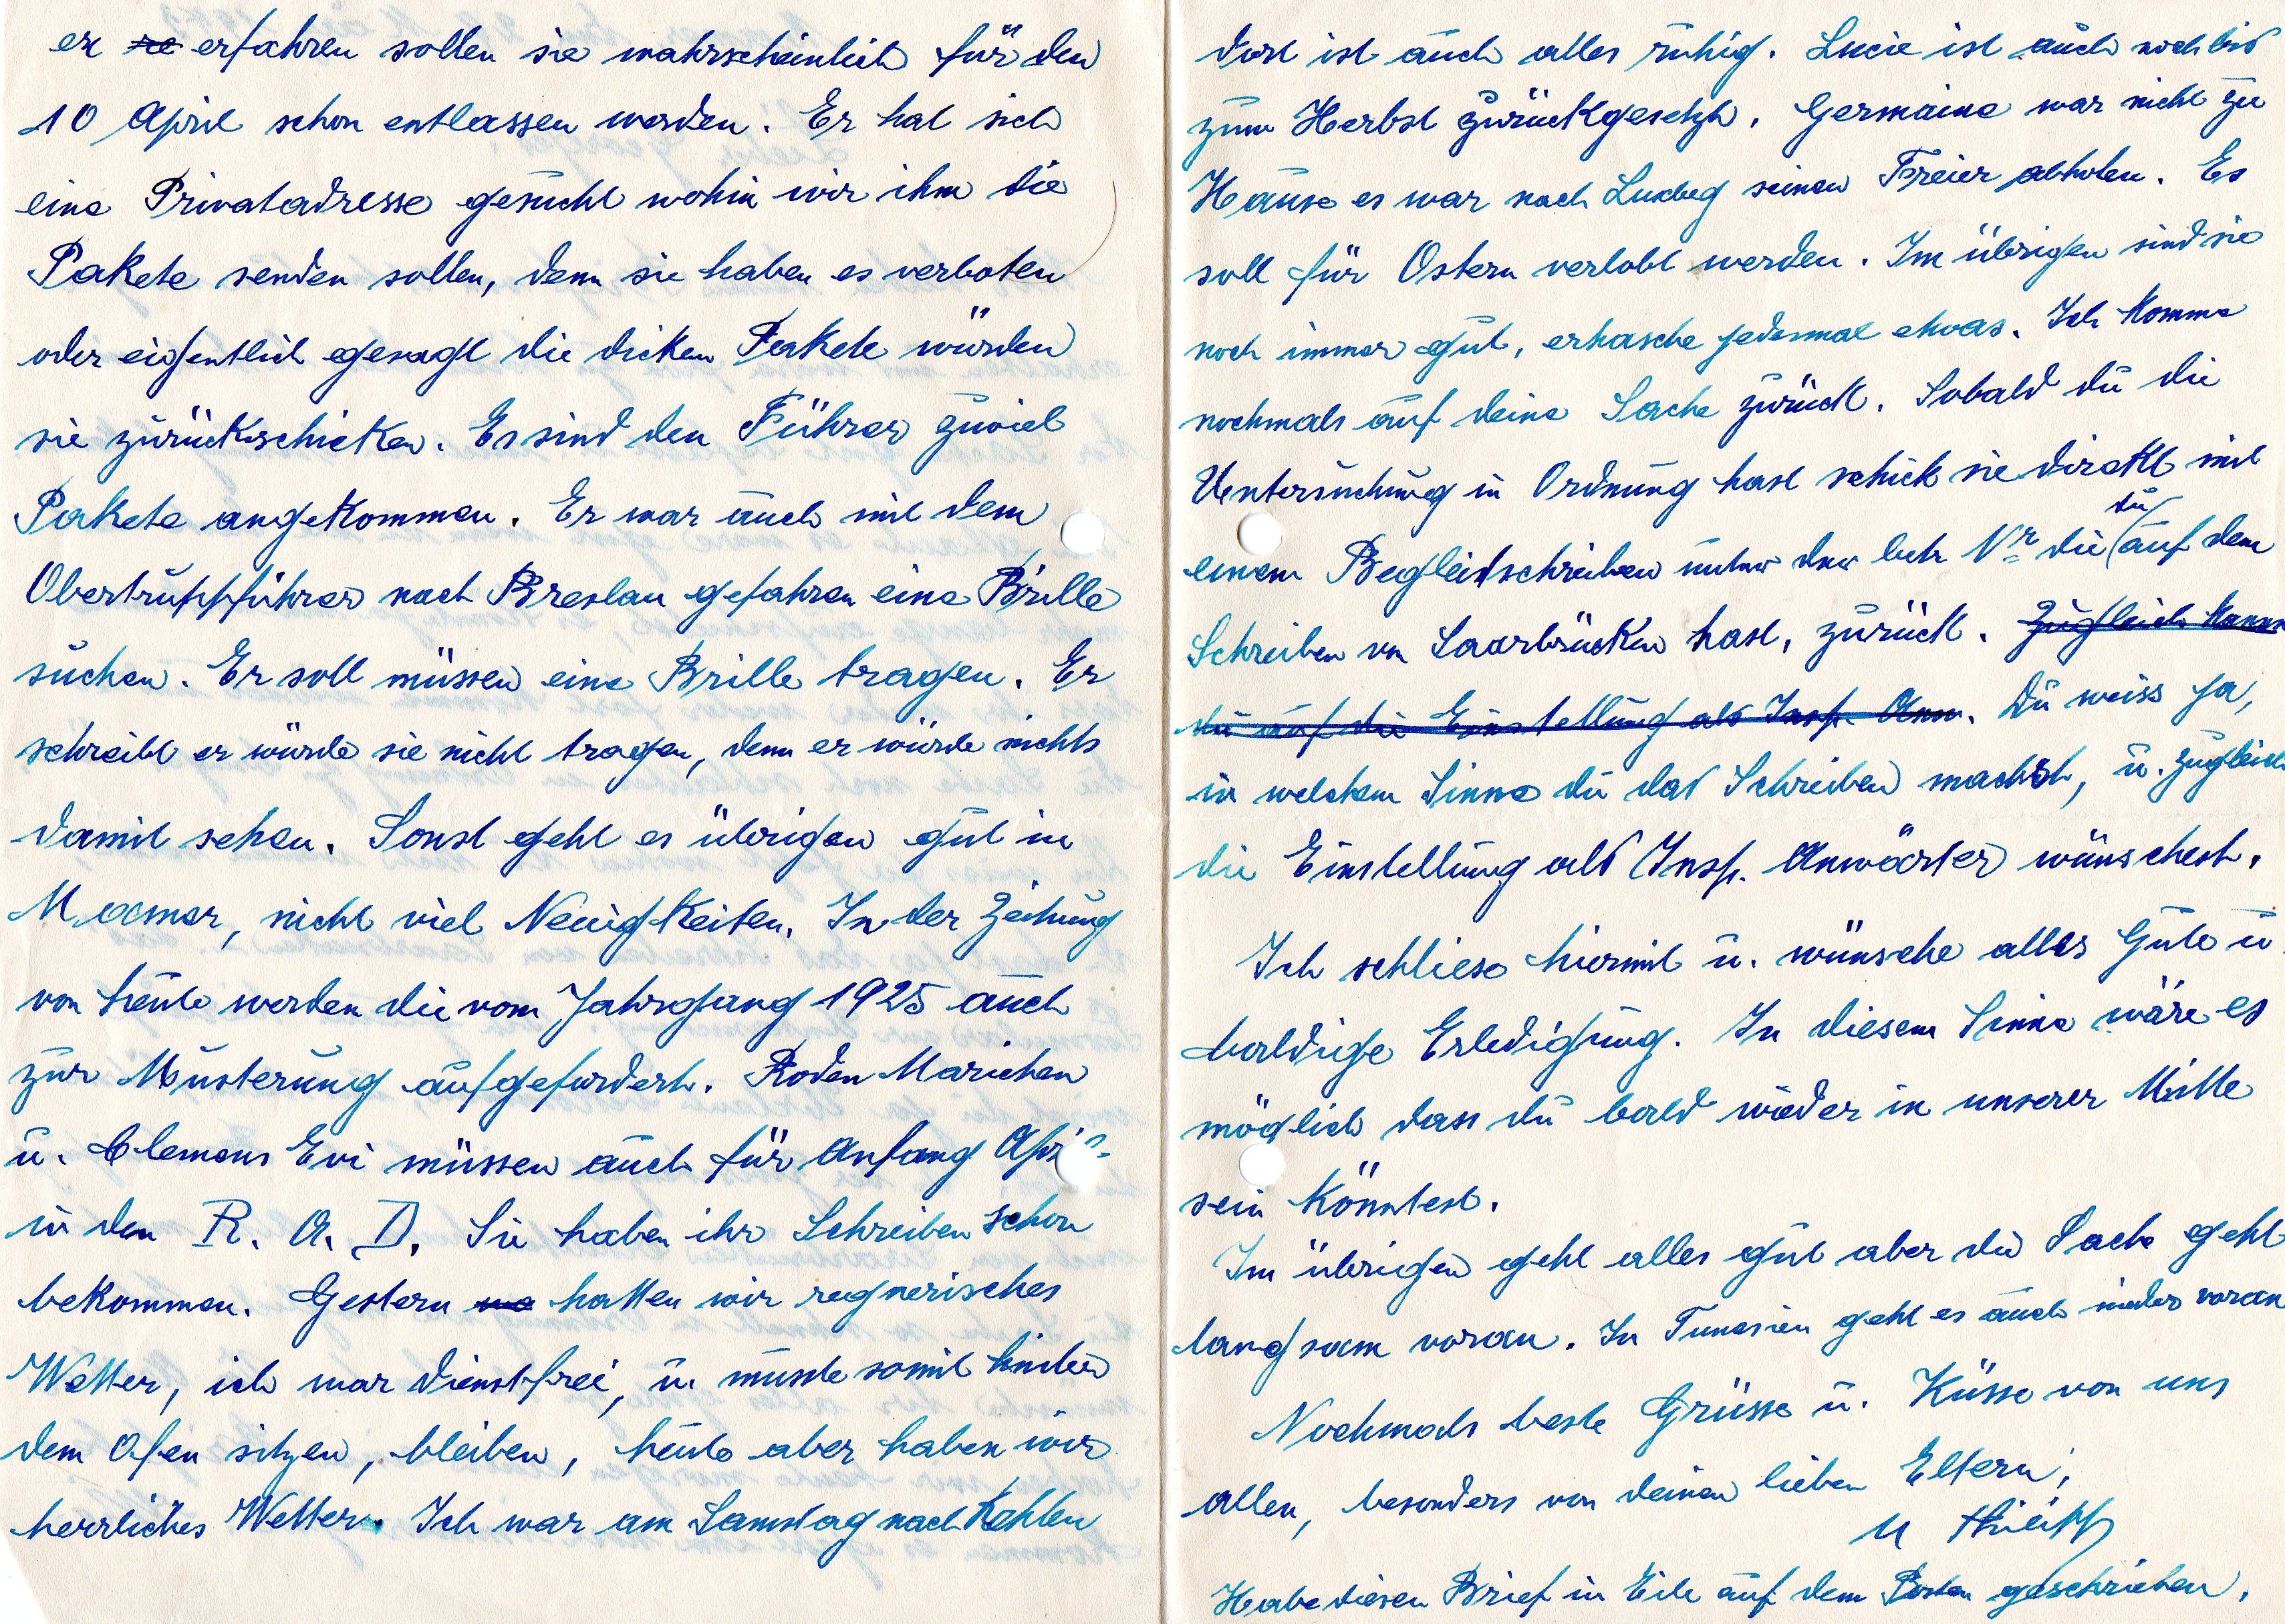 er re erfahren sollen sie wahrscheinlich für den
10 April schon entlassen werden. Er hat sich
eine Privatadresse gesucht wohin wir ihm die
Pakete senden sollen, denn sie haben es verboten
oder eigentlich gesagt die dicken Pakete würden
sie zurückschicken. Es sind den Führer zuviel
Pakete angekommen. Er war auch mit dem
Obertruppführer nach Breslau gefahren eine Brille
suchen. Er soll müssen eine Brille tragen. Er
schreibt er würde sie nicht tragen, denn er würde nichts
damit sehen. Sonst geht es übrigen gut in
Mamer, nicht viel Neuigkeiten. In der Zeitung
von heute werden die vom Jahrgang 1925 auch
zur Musterung aufgefordert. Roden Mariechen
u. Clemens Evi müssen auch für Anfang April
in den R. A. D. Sie haben ihr Schreiben schon
bekommen. Gestern wa hatten wir regnerisches
Wetter, ich war dienstfrei, u. musste somit hinter
dem Ofen sitzen, bleiben, heute aber haben wir
herrliches Wetter. Ich war am Samstag nach Kehlen
dort ist auch alles ruhig. Lucie ist auch noch bis
zum Herbst zurückgesetzt. Germaine war nicht zu
Hause es war nach Luxbg seinen Freier abholen. Es
soll für Ostern verlobt werden. Im übrigen sind sie
noch immer gut, erhasche jedesmal etwas. Ich komme
nochmals auf deine Sache zurück. Sobald du die
Untersuchung in Ordnung hast schick sie direkt mit
einem Begleitschreiben unter der betr Nr die du auf dem
Schreiben von Saarbrücken hast, zurück. Zugleich kanns
du auf die Einstellung als Insp. Anw. Du weiss ja,
in welchem Sinne du das Schreiben machst, u. zugleich
die Einstellung als Insp. Anwärter wünschest.
Ich schliese hiermit u. wünsche alles Gute u.
baldige Erledigung. In diesem Sinne wäre es
möglich dass du bald wieder in unserer Mitte
sein könntest.
Im übrigen geht alles gut aber die Sache geht
langsam voran. In Tunesien geht es auch wieder voran
Nochmals beste Grüsse u. Küsse von uns
allen, besonders von deinen lieben Eltern,
Habe diesen Brief in Eile auf dem Posten geschrieben.